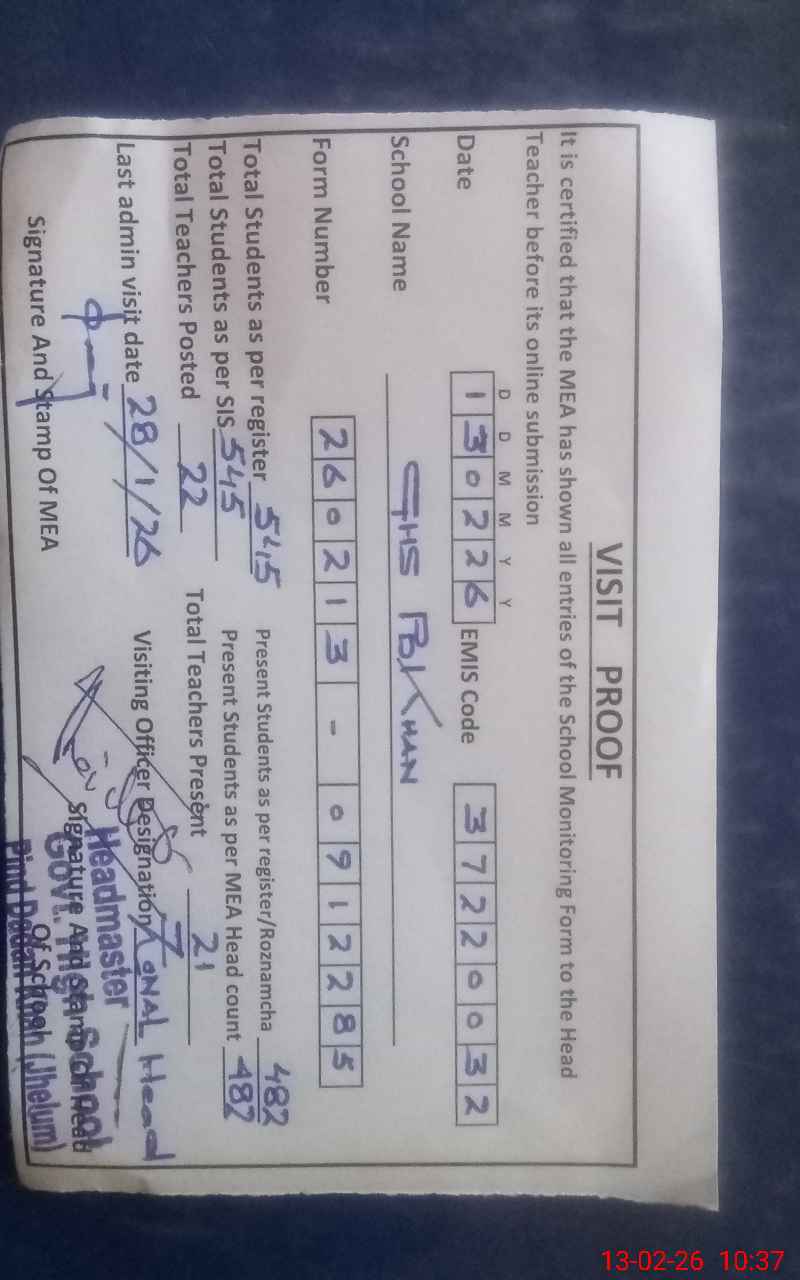 VISIT PROOF
It is certified that the MEA has shown all entries of the School Monitoring Form to the Head
Teacher before its online submission
D D M M Y Y
Date 1 3 0 2 2 6 EMIS Code 3 7 2 2 0 0 3 2
School Name GHS P.D.KHAN
Form Number 2 6 0 2 1 3 - 0 9 1 2 2 8 5
Total Students as per register 545 Present Students as per register/Roznamcha 482
Total Students as per SIS 545 Present Students as per MEA Head count 482
Total Teachers Posted 22 Total Teachers Present 21
Last admin visit date 28/1/26 Visiting Officer Designation Zonal Head
Signature And Stamp Of MEA Signature And Stamp Of Head
Of School
Headmaster
Govt. High School
Pind Dadan Khan (Jhelum)
13-02-26 10:37